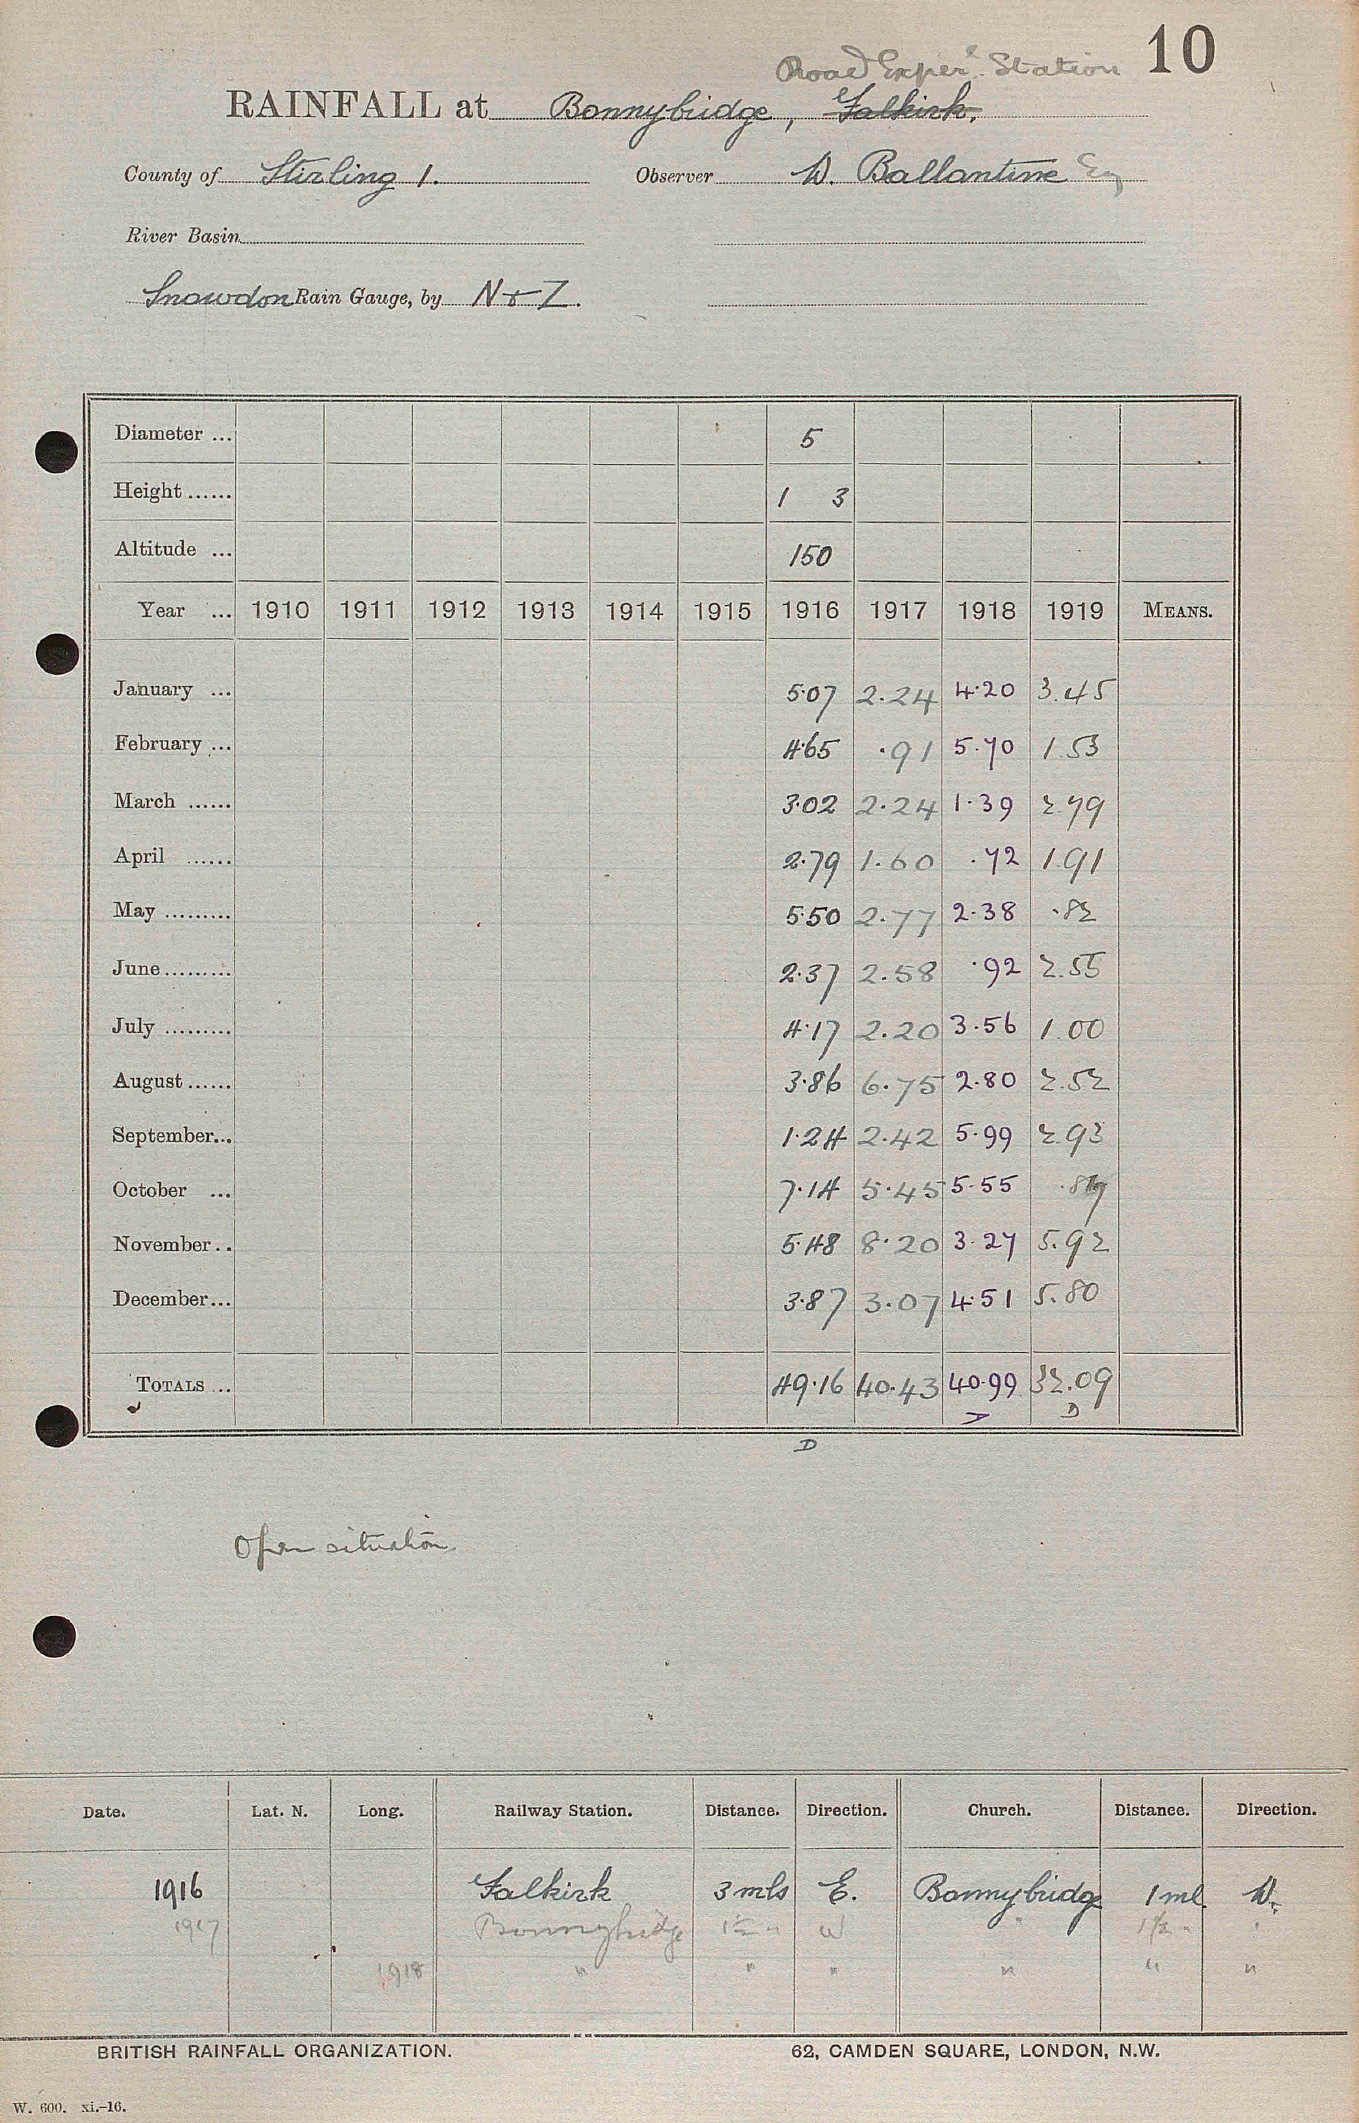 10
Road Exper! Station
RAINFALL at Bonnybridge, Falkirk.
County of Stirling 1. Observer W. Ballantine Esq
River Basin
Snowdon Rain Gauge, by N & Z.
Diameter ... 5
Height ...... 1 3
Altitude ... 150
Year ... 1910 1911 1912 1913 1914 1915 1916 1917 1918 1919 MEANS.
January ... 5.07 2.24 4.20 3.45
February ... 4.65 .91 5.70 1.53
March ...... 3.02 2.24 1.39 2.79
April ...... 2.79 1.60 .72 1.91
May ......... 5.50 2.77 2.38 .82
June ......... 2.37 2.58 .92 2.55
July ......... 4.17 2.20 3.56 1.00
August ...... 3.86 6.75 2.80 2.52
September... 1.24 2.42 5.99 2.93
October ... 7.14 5.45 5.55 .87
November .. 5.48 8.20 3.27 5.92
December... 3.87 3.07 4.51 5.80
TOTALS ... 49.16 40.43 40.99 32.09
D
D
Open situation
Date. Lat. N. Long. Railway Station. Distance. Direction. Church. Distance. Direction.
1916 Falkirk 3 mls E. Bonnybridge 1 ml W.
1917 Bonnybridge 1½ " W " 1½ " "
1918 " " " " " "
BRITISH RAINFALL ORGANIZATION. 62, CAMDEN SQUARE, LONDON, N.W.
W. 600. xi.-16.